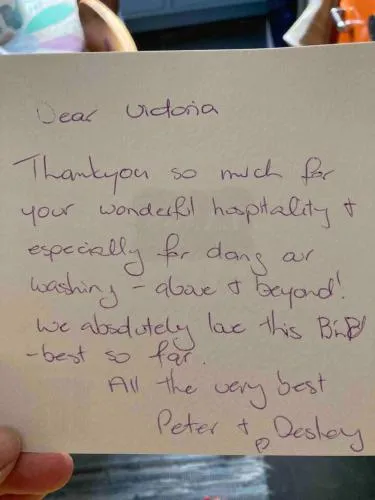 Dear Victoria
Thankyou so much for
your wonderful hospitality +
especially for doing our
washing - above + beyond!
We absolutely love this BnB
- best so far.
All the very best
Peter +